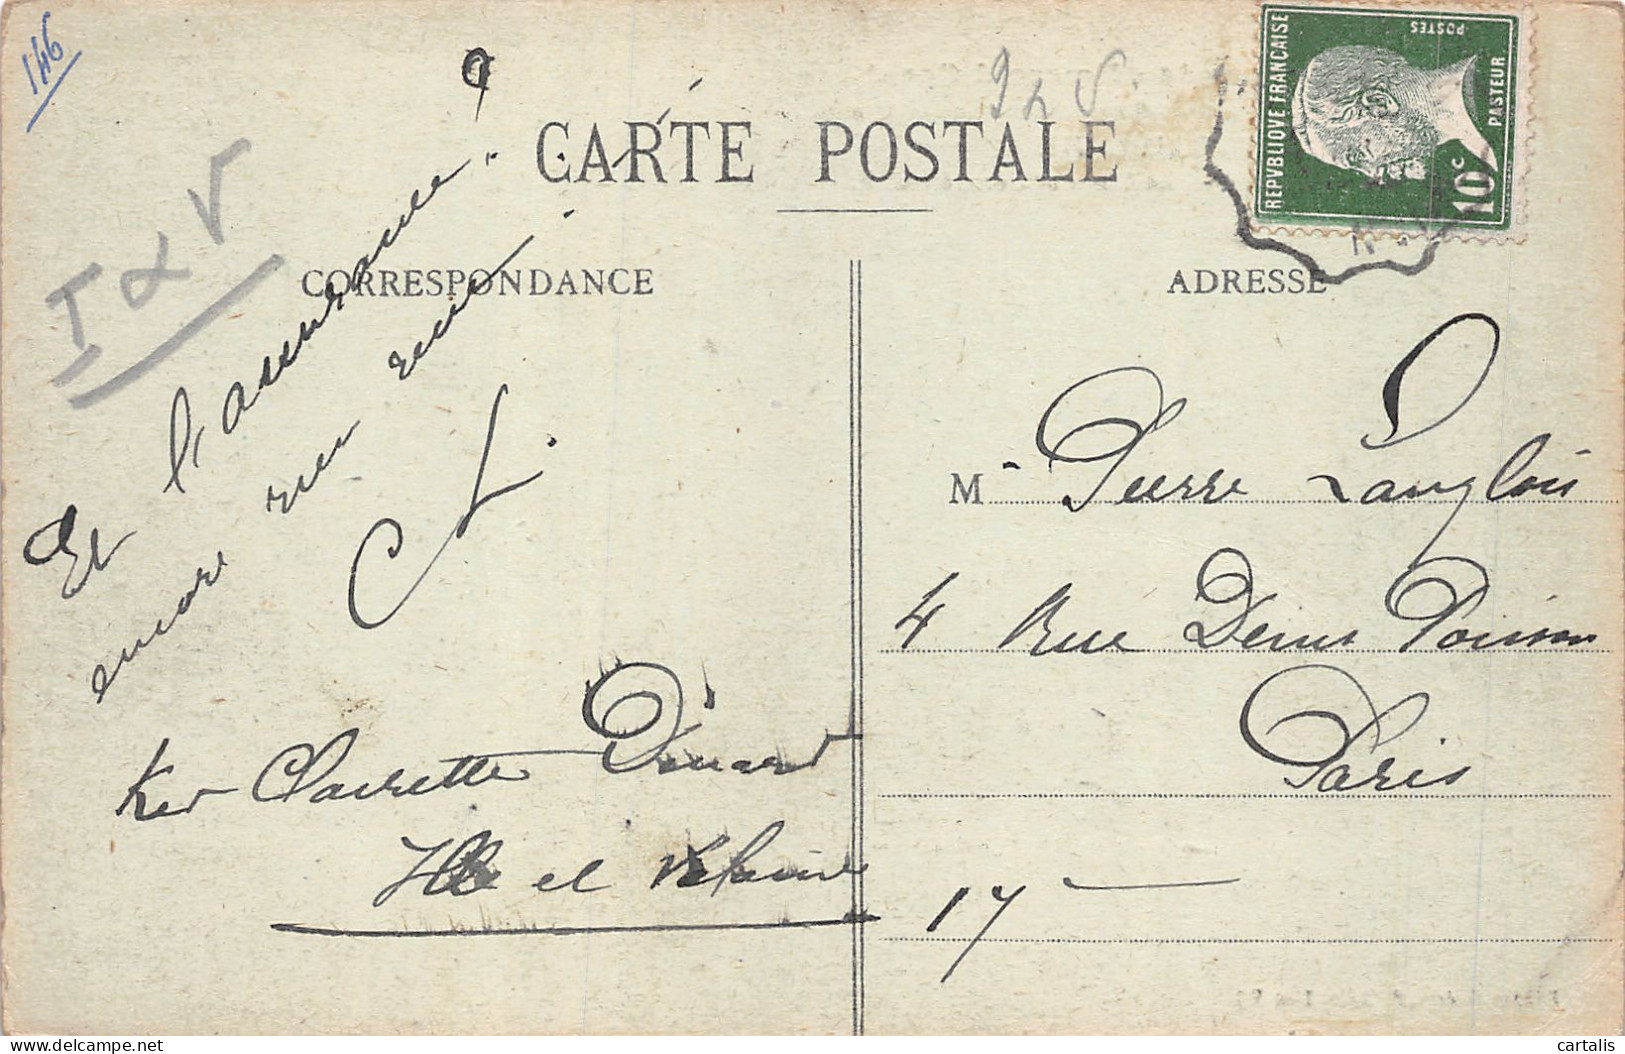 146
I & V
CARTE POSTALE
REPVBLIQVE FRANÇAISE
POSTES
PASTEUR
10c
CORRESPONDANCE
ADRESSE
Et l'assurance ?
encore rien reçu
Ker Clairette Dinard
Ille et Vilaine
M Pierre Langlois
4 Rue Denis Poisson
Paris
17
cartalis